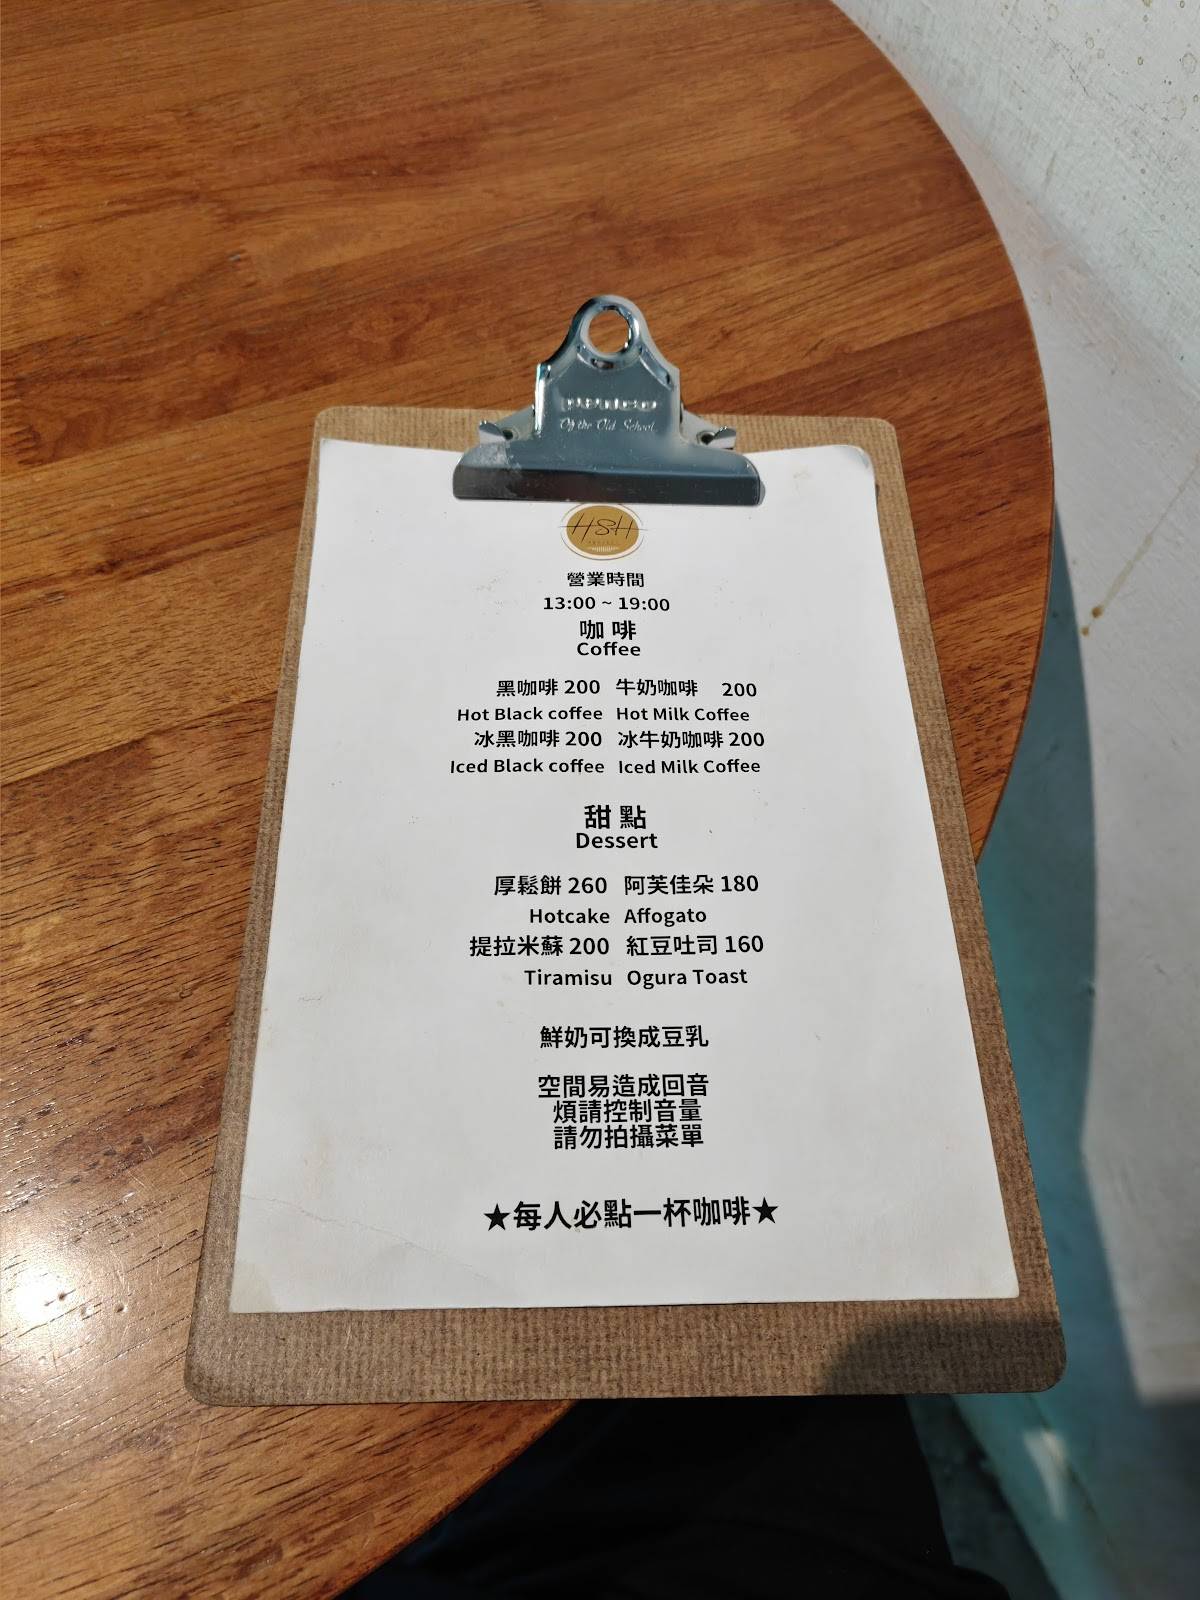 penco
Of the Old School
HSH
營業時間
13:00 ~ 19:00
咖 啡
Coffee
黑咖啡 200 牛奶咖啡 200
Hot Black coffee Hot Milk Coffee
冰黑咖啡 200 冰牛奶咖啡 200
Iced Black coffee Iced Milk Coffee
甜 點
Dessert
厚鬆餅 260 阿芙佳朵 180
Hotcake Affogato
提拉米蘇 200 紅豆吐司 160
Tiramisu Ogura Toast
鮮奶可換成豆乳
空間易造成回音
煩請控制音量
請勿拍攝菜單
★每人必點一杯咖啡★